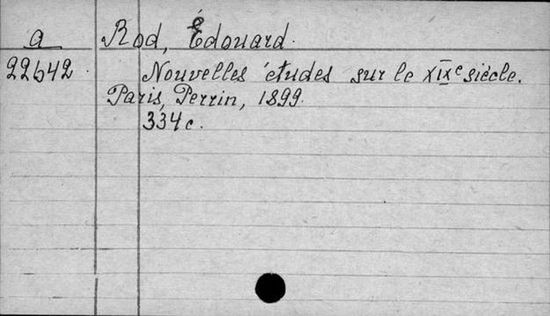 a Rod, Édouard.
22642. Nouvelles études sur le XIXe siècle.
Paris, Perrin, 1899.
334 c.